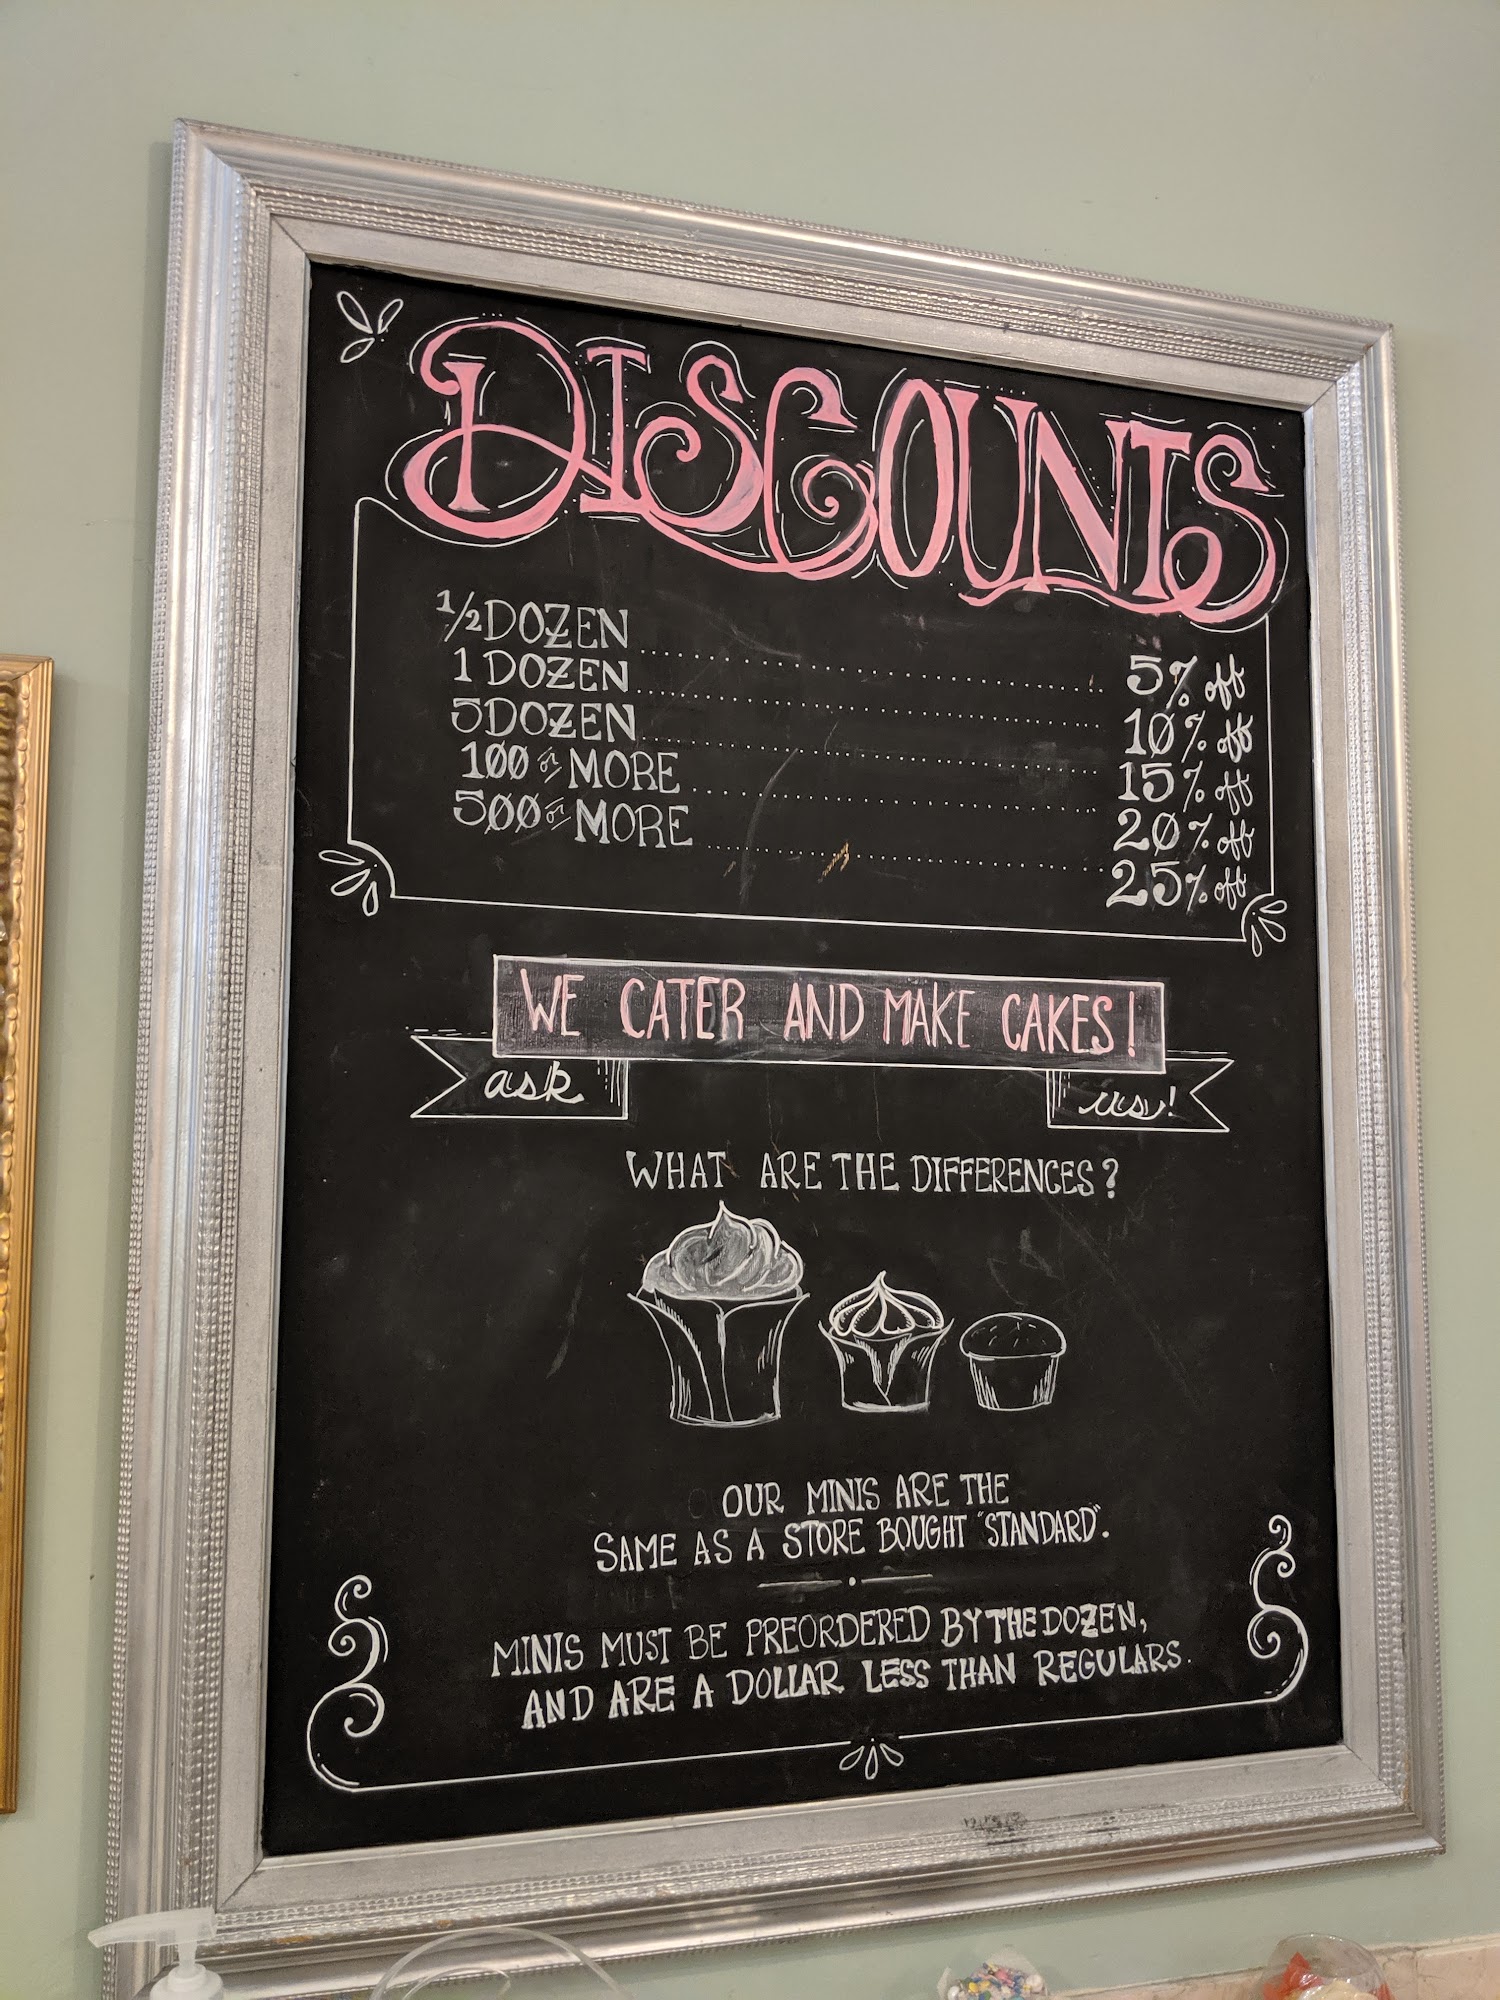 DISCOUNTS
1/2 DOZEN 5% off
1 DOZEN 10% off
5 DOZEN 15% off
100 or MORE 20% off
500 or MORE 25% off
WE CATER AND MAKE CAKES!
ask us!
WHAT ARE THE DIFFERENCES?
OUR MINIS ARE THE
SAME AS A STORE BOUGHT "STANDARD".
MINIS MUST BE PREORDERED BY THE DOZEN,
AND ARE A DOLLAR LESS THAN REGULARS.